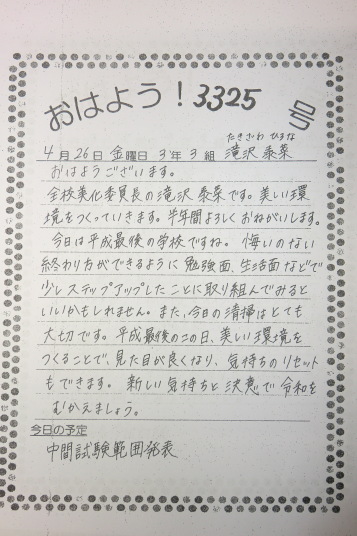 おはよう！3325号
たきざわ ひろな
4月26日 金曜日 3年3組 滝沢 泰菜
おはようございます。
全校美化委員長の滝沢 泰菜です。美しい環
境をつくっていきます。半年間よろしくおねがいします。
今日は平成最後の学校ですね。悔いのない
終わり方ができるように勉強面、生活面などで
少しステップアップしたことに取り組んでみると
いいかもしれません。また、今日の清掃はとても
大切です。平成最後のこの日、美しい環境を
つくることで、見た目が良くなり、気持ちのリセット
もできます。新しい気持ちと決意で令和を
むかえましょう。
今日の予定
中間試験範囲発表